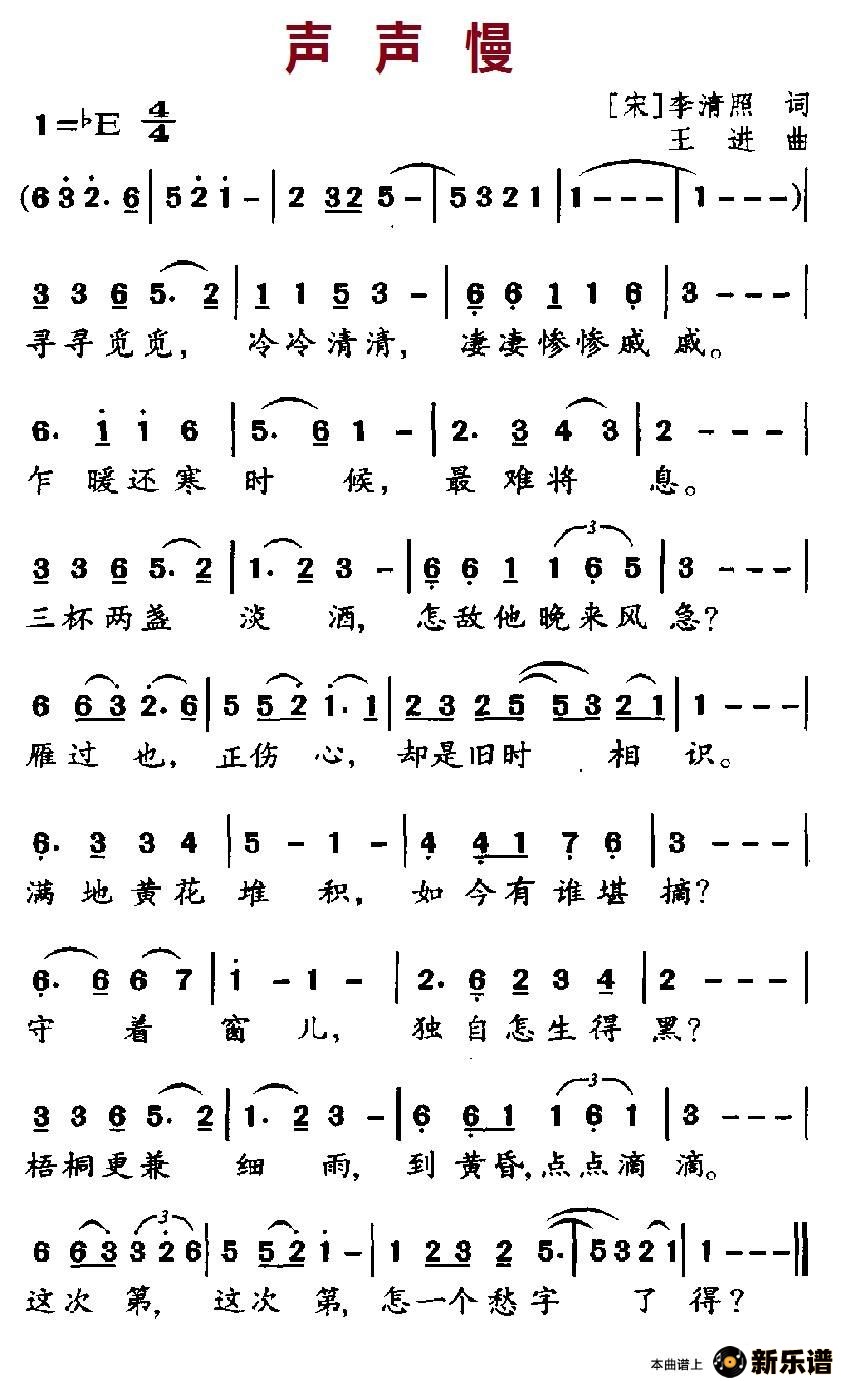 声声慢
1=♭E 4/4
[宋]李清照 词
王进 曲
(6 3 2. 6 | 5 2 1 - | 2 32 5 - | 5 3 2 1 | 1 - - - | 1 - - -) |
3 3 6 5. 2 | 1 1 5 3 - | 6 6 1 1 6 | 3 - - - |
寻寻觅觅， 冷冷清清， 凄凄惨惨戚戚。
6. 1 1 6 | 5. 6 1 - | 2. 3 4 3 | 2 - - - |
乍暖还寒时候， 最难将息。
3 3 6 5. 2 | 1. 2 3 - | 6 6 1 1 6 5 | 3 - - - |
3
三杯两盏淡酒， 怎敌他晚来风急？
6 63 2. 6 | 5 52 1. 1 | 23 25 53 21 | 1 - - - |
雁过也， 正伤心， 却是旧时相识。
6. 3 3 4 | 5 - 1 - | 4 41 7 6 | 3 - - - |
满地黄花堆积， 如今有谁堪摘？
6. 6 6 7 | 1 - 1 - | 2. 6 2 3 4 | 2 - - - |
守着窗儿， 独自怎生得黑？
3 3 6 5. 2 | 1. 2 3 - | 6 61 1 6 1 | 3 - - - |
3
梧桐更兼细雨， 到黄昏，点点滴滴。
6 63 3 2 6 | 5 52 1 - | 1 23 2 5. | 5 3 2 1 | 1 - - - ||
3
这次第， 这次第， 怎一个愁字了得？
本曲谱上 新乐谱